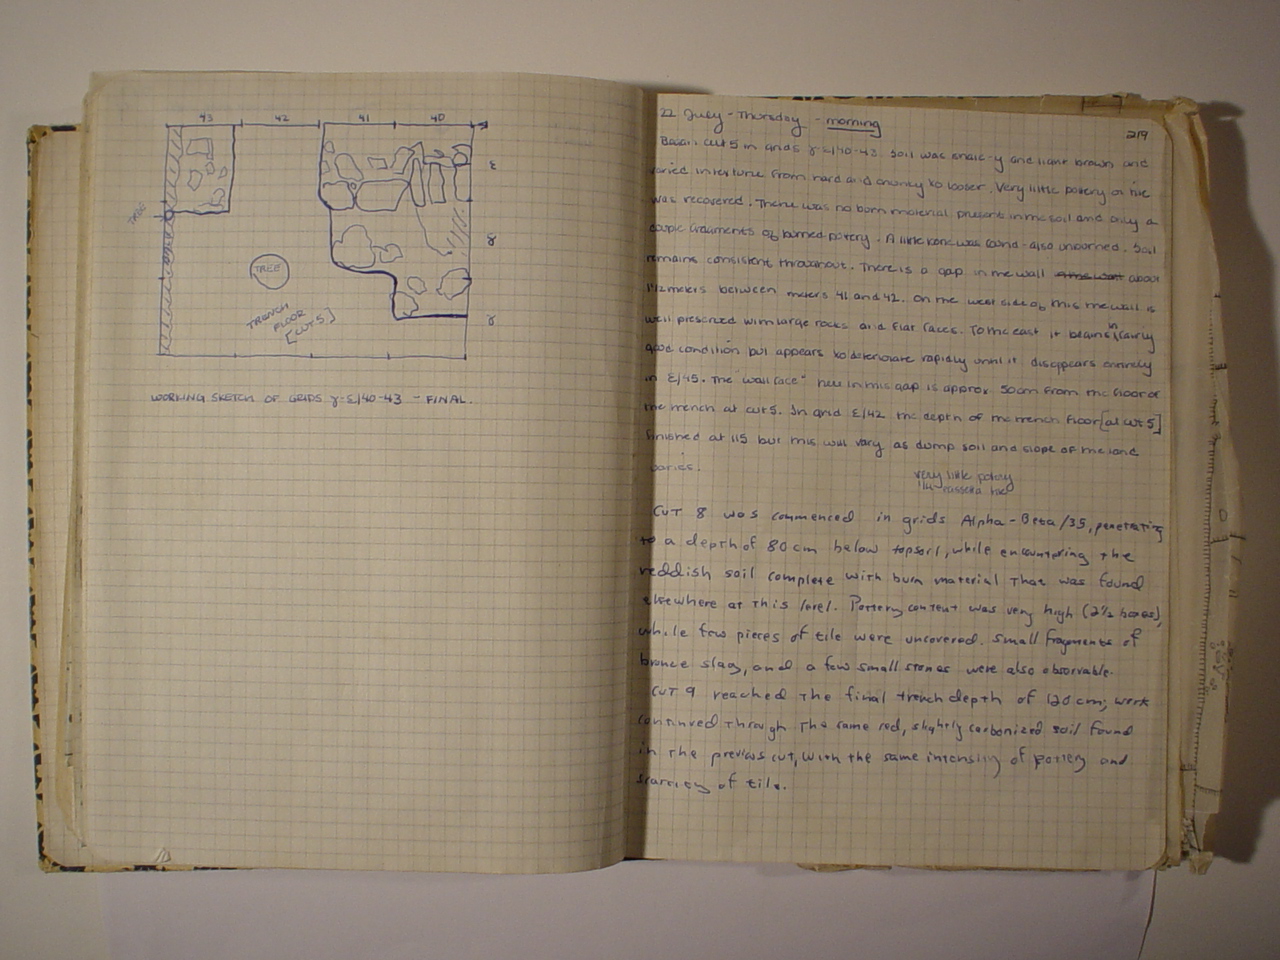 43 42 41 40
ε
TREE
δ
TREE
TRENCH
FLOOR
[CUT 5]
γ
WORKING SKETCH OF GRIDS γ-ε/40-43 - FINAL.
22 July - Thursday - morning
219
Began cut 5 in grids γ-ε/40-43. Soil was and light brown and
varied in texture from hard and chunky to looser. Very little pottery or tile
was recovered. There was no burn material present in the soil and only a
couple fragments of burned pottery. A little bone was found - also unburned. Soil
remains consistent throughout. There is a gap in the wall about
1 1/2 meters between meters 41 and 42. On the west side of this the wall is
well preserved with large rocks and flat faces. To the east it begins in fairly
good condition but appears to deteriorate rapidly until it disappears entirely
in ε/45. The "wall face" here in this gap is approx 50cm from the floor of
the trench at cut 5. In grid ε/42 the depth of the trench floor [at cut 5]
finished at 115 but this will vary as dump soil and slope of the land
varies.
very little pottery
tile
Cut 8 was commenced in grids Alpha-Beta/35, penetrating
to a depth of 80 cm below topsoil, while encountering the
reddish soil complete with burn material that was found
elsewhere at this level. Pottery content was very high (2½ boxes),
while few pieces of tile were uncovered. Small fragments of
bronze slag, and a few small stones were also observable.
Cut 9 reached the final trench depth of 120 cm; work
continued through the same red, slightly carbonized soil found
in the previous cut, with the same intensity of pottery and
scarcity of tile.